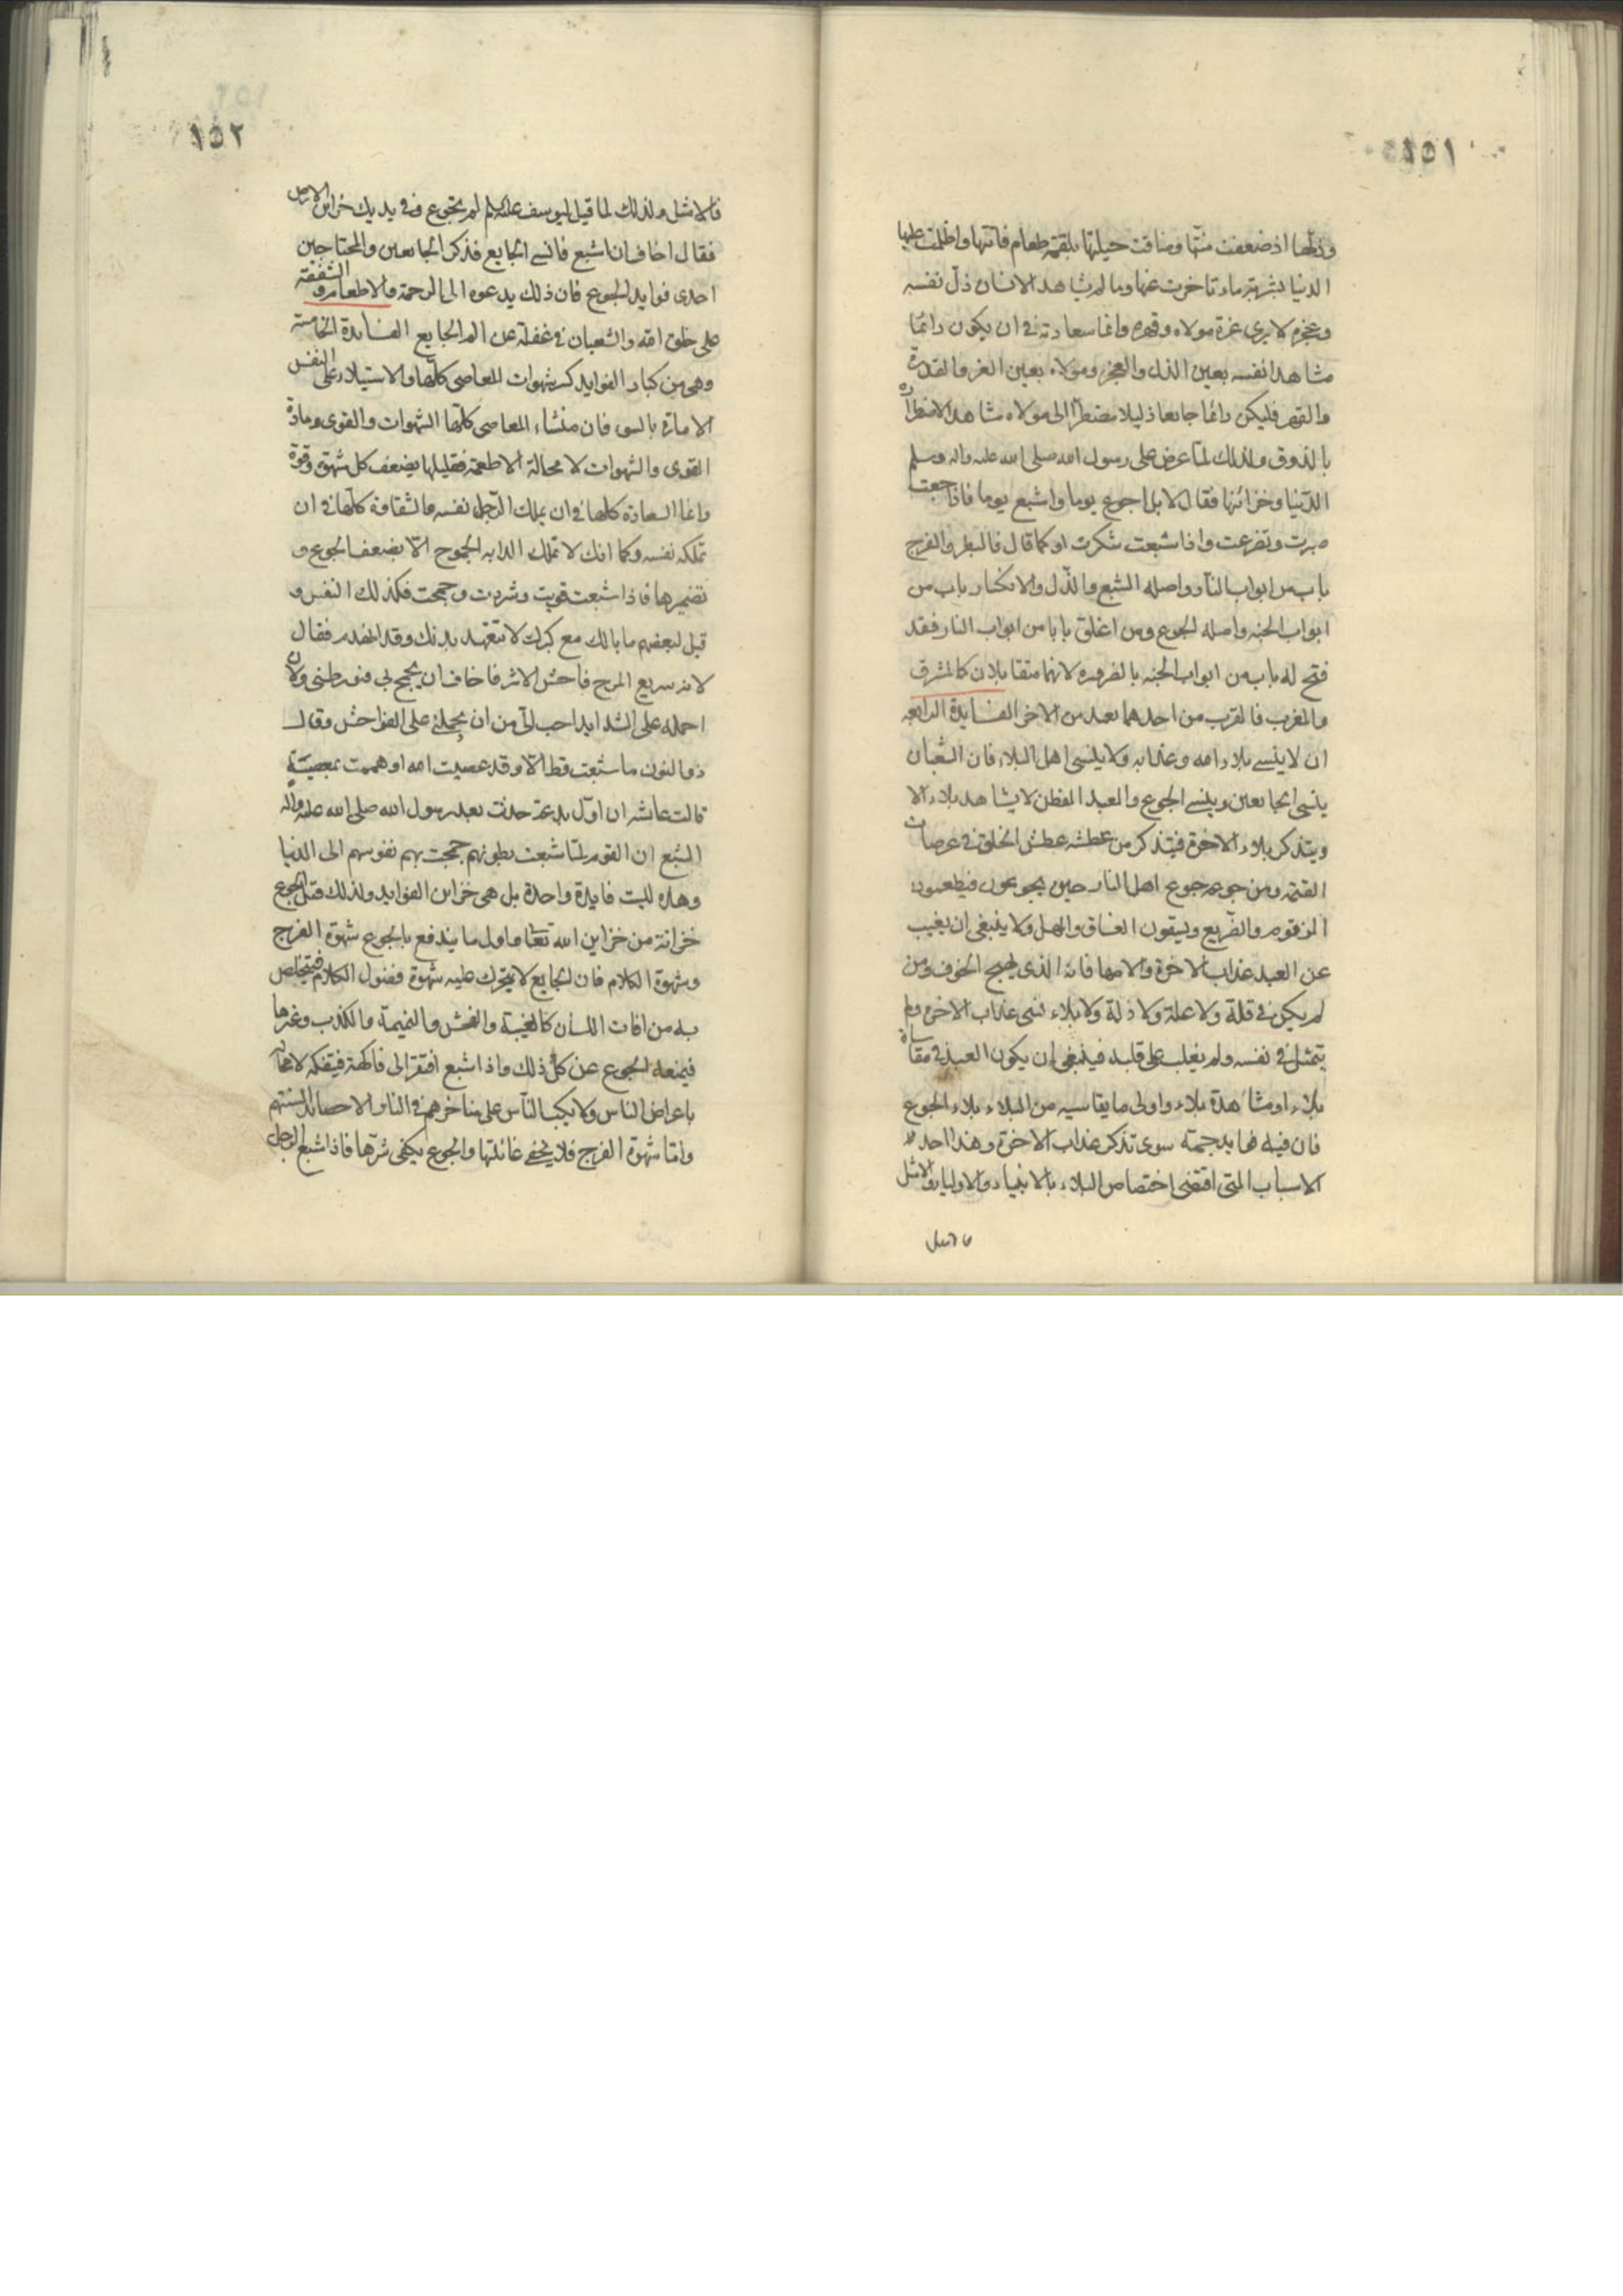 ١٥١
وذلها اذ ضعفت منتها وضاقت حيلتها بلقمة طعام فاتتها واظلمت عليها
الدنيا بشربة ماء تاخرت عنها وما لم يشاهد الانسان ذل نفسه
وعجزه لا يرى عزة مولاه وقهره وانما سعادته فى ان يكون دائما
مشاهدا نفسه بعين الذل والعجز ومولاه بعين العز والقدرة
والقهر فليكن دائما جايعا ذليلا مضطرا الى مولاه مشاهدا لاضطراره
بالذوق ولذلك لما عرض على رسول الله صلى الله عليه واله وسلم
الدنيا وخزائنها فقال لا بل اجوع يوما واشبع يوما فاذا جعت
صبرت وتضرعت واذا شبعت شكرت او كما قال فالبطر والفرج
باب من ابواب النار واصله الشبع والذل والانكسار باب من
ابواب الجنه واصله الجوع ومن اغلق بابا من ابواب النار فقد
فتح له باب من ابواب الجنه بالضروره لانهما متقابلان كالمشرق
والمغرب فالقرب من احدهما بعد من الاخر الفايدة الرابعه
ان لا ينسى بلاء الله وعذابه ولا ينسى اهل البلاء فان الشبعان
ينسى الجايعين وينسى الجوع والعبد الفطن لا يشاهد بلاء الا
ويتذكر بلاء الاخرة فيتذكر من عطشه عطش الخلق فى عرصات
القيمه ومن جوعه جوع اهل النار حين يجوعون فيطعمون
الزقوم والضريع ويسقون الغساق والمهل ولا ينبغى ان يغيب
عن العبد عذاب الاخرة والامها فانه الذى يهيج الخوف ومن
لم يكن فى قلة ولا علة ولا ذلة ولا بلاء نسى عذاب الاخره ولم
يتمثل فى نفسه ولم يغلب على قلبه فينبغى ان يكون العبد فى مقاساة
بلاء او مشاهدة بلاء واولى ما يقاسيه من البلاء بلاء الجوع
فان فيه فوايد جمة سوى تذكر عذاب الاخرة وهذا احد
الاسباب التى اقتضى اختصاص البلاء بالانبياء والاولياء والامثل
فالامثل
١٥٢
فالامثل ولذلك لما قيل ليوسف عليه السلم لم تجوع وفى يديك خزاين الارض
فقال اخاف ان اشبع فانسى الجايع فذكر الجايعين والمحتاجين
احدى فوايد الجوع فان ذلك يدعوه الى الرحمة والاطعام والشفقة
على خلق الله والشبعان فى غفلة عن الم الجايع الفايدة الخامسة
وهى من كبار الفوايد كسر شهوات المعاصى كلها والاستيلاء على النفس
الامارة بالسوء فان منشاء المعاصى كلها الشهوات والقوى ومادة
القوى والشهوات لا محالة الاطعمة فتقليلها يضعف كل شهوة وقوة
وانما السعادة كلها فى ان يملك الرجل نفسه والشقاوة كلها فى ان
تملكه نفسه وكما انك لا تملك الدابه الجموح الا بضعف الجوع و
تضميرها فاذا شبعت قويت وشردت وجمحت فكذلك النفس و
قيل لبعضهم ما بالك مع كبرك لا تتعهد بدنك وقد انهدم فقال
لانه سريع المرح فاحش الاشر فاخاف ان يجمح بى فيورطنى ولان
احمله على الشدايد احب الى من ان يحملنى على الفواحش وقال
ذوالنون ما شبعت قط الا وقد عصيت الله او هممت بمعصيته
قالت عائشه ان اول بدعة حدثت بعد رسول الله صلى الله عليه واله
الشبع ان القوم لما شبعت بطونهم جمحت بهم نفوسهم الى الدنيا
وهذه ليست فايدة واحدة بل هى خزاين الفوايد ولذلك قيل الجوع
خزانة من خزاين الله تعالى واول ما يندفع بالجوع شهوة الفرج
وشهوة الكلام فان الجايع لا يتحرك عليه شهوة فضول الكلام فيتخلص
به من افات اللسان كالغيبة والفحش والنميمة والكذب وغيرها
فيمنعه الجوع عن كل ذلك واذا شبع افتقر الى فاكهة فيتفكه لا محالة
باعراض الناس ولا يكب الناس على مناخرهم فى النار الا حصائد السنتهم
واما شهوة الفرج فلا يخفى غائلتها والجوع يكفى شرها فاذا شبع الرجل